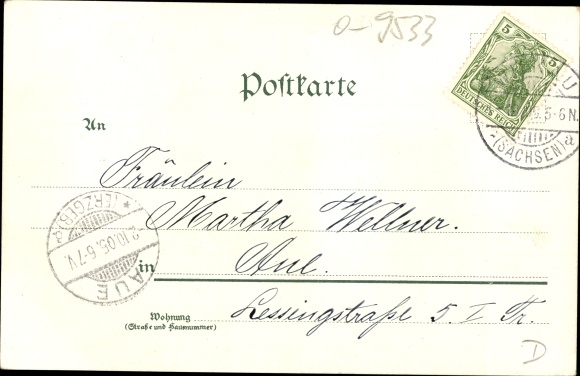 0-9533
5 5
DEUTSCHES REICH
5-6 N.
(SACHSEN) a
Postkarte
An
Fräulein
Martha Wellner.
in Aue.
Wohnung
(Straße und Hausnummer)
Lessingstraße 5. I Tr.
(ERZGEB.)
2.10.05. 6-7 V.
AUE
D